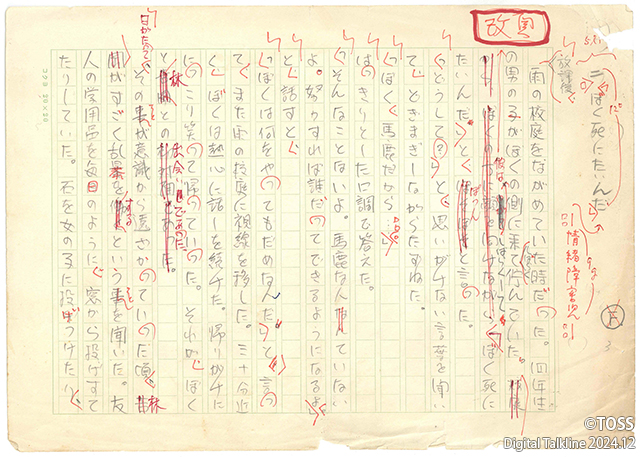 改 奥
「ぼく死にたいんだ」
放課後
情緒障害児
雨の校庭をながめていた時だった。四年生
の男の子がぼくの側に来て佇んでいた。
「ぼく死に
たいんだ。」と、ぽつんと言った。
「どうして?」と思いがけない言葉を聞い
て、どぎまぎしながらたずねた。
「ぼく、馬鹿だから……」
はっきりとした口調で答えた。
「そんなことないよ。馬鹿な人なんていない
よ。努力すれば誰だってできるようになるよ」
と話すと、
「ぼくは何をやってもだめなんだ」と言っ
て、また雨の校庭に視線を移した。三十分近
く、ぼくは熱心に話し続けた。帰りがけに
にっこり笑って帰っていった。それが、ぼく
と林との出会いであった。
その事が意識から遠ざかっていった頃、林
がすごく乱暴をするという事を聞いた。友
人の学用品を毎日のように、窓から投げすて
たりしていた。石を女の子に投げつけたり、
©TOSS
Digital Talkline 2024.12